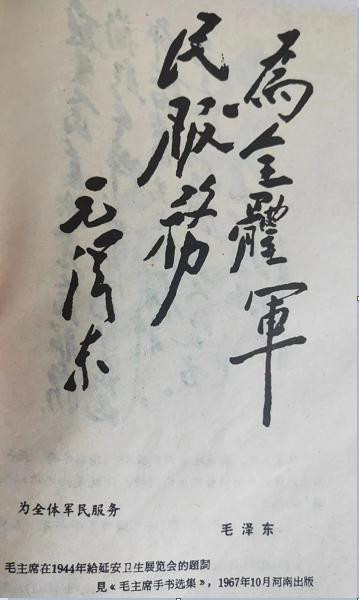 為全體軍
民服務
毛澤东
为全体军民服务
毛泽东
毛主席在1944年給延安卫生展览会的题詞
見《毛主席手书选集》，1967年10月河南出版